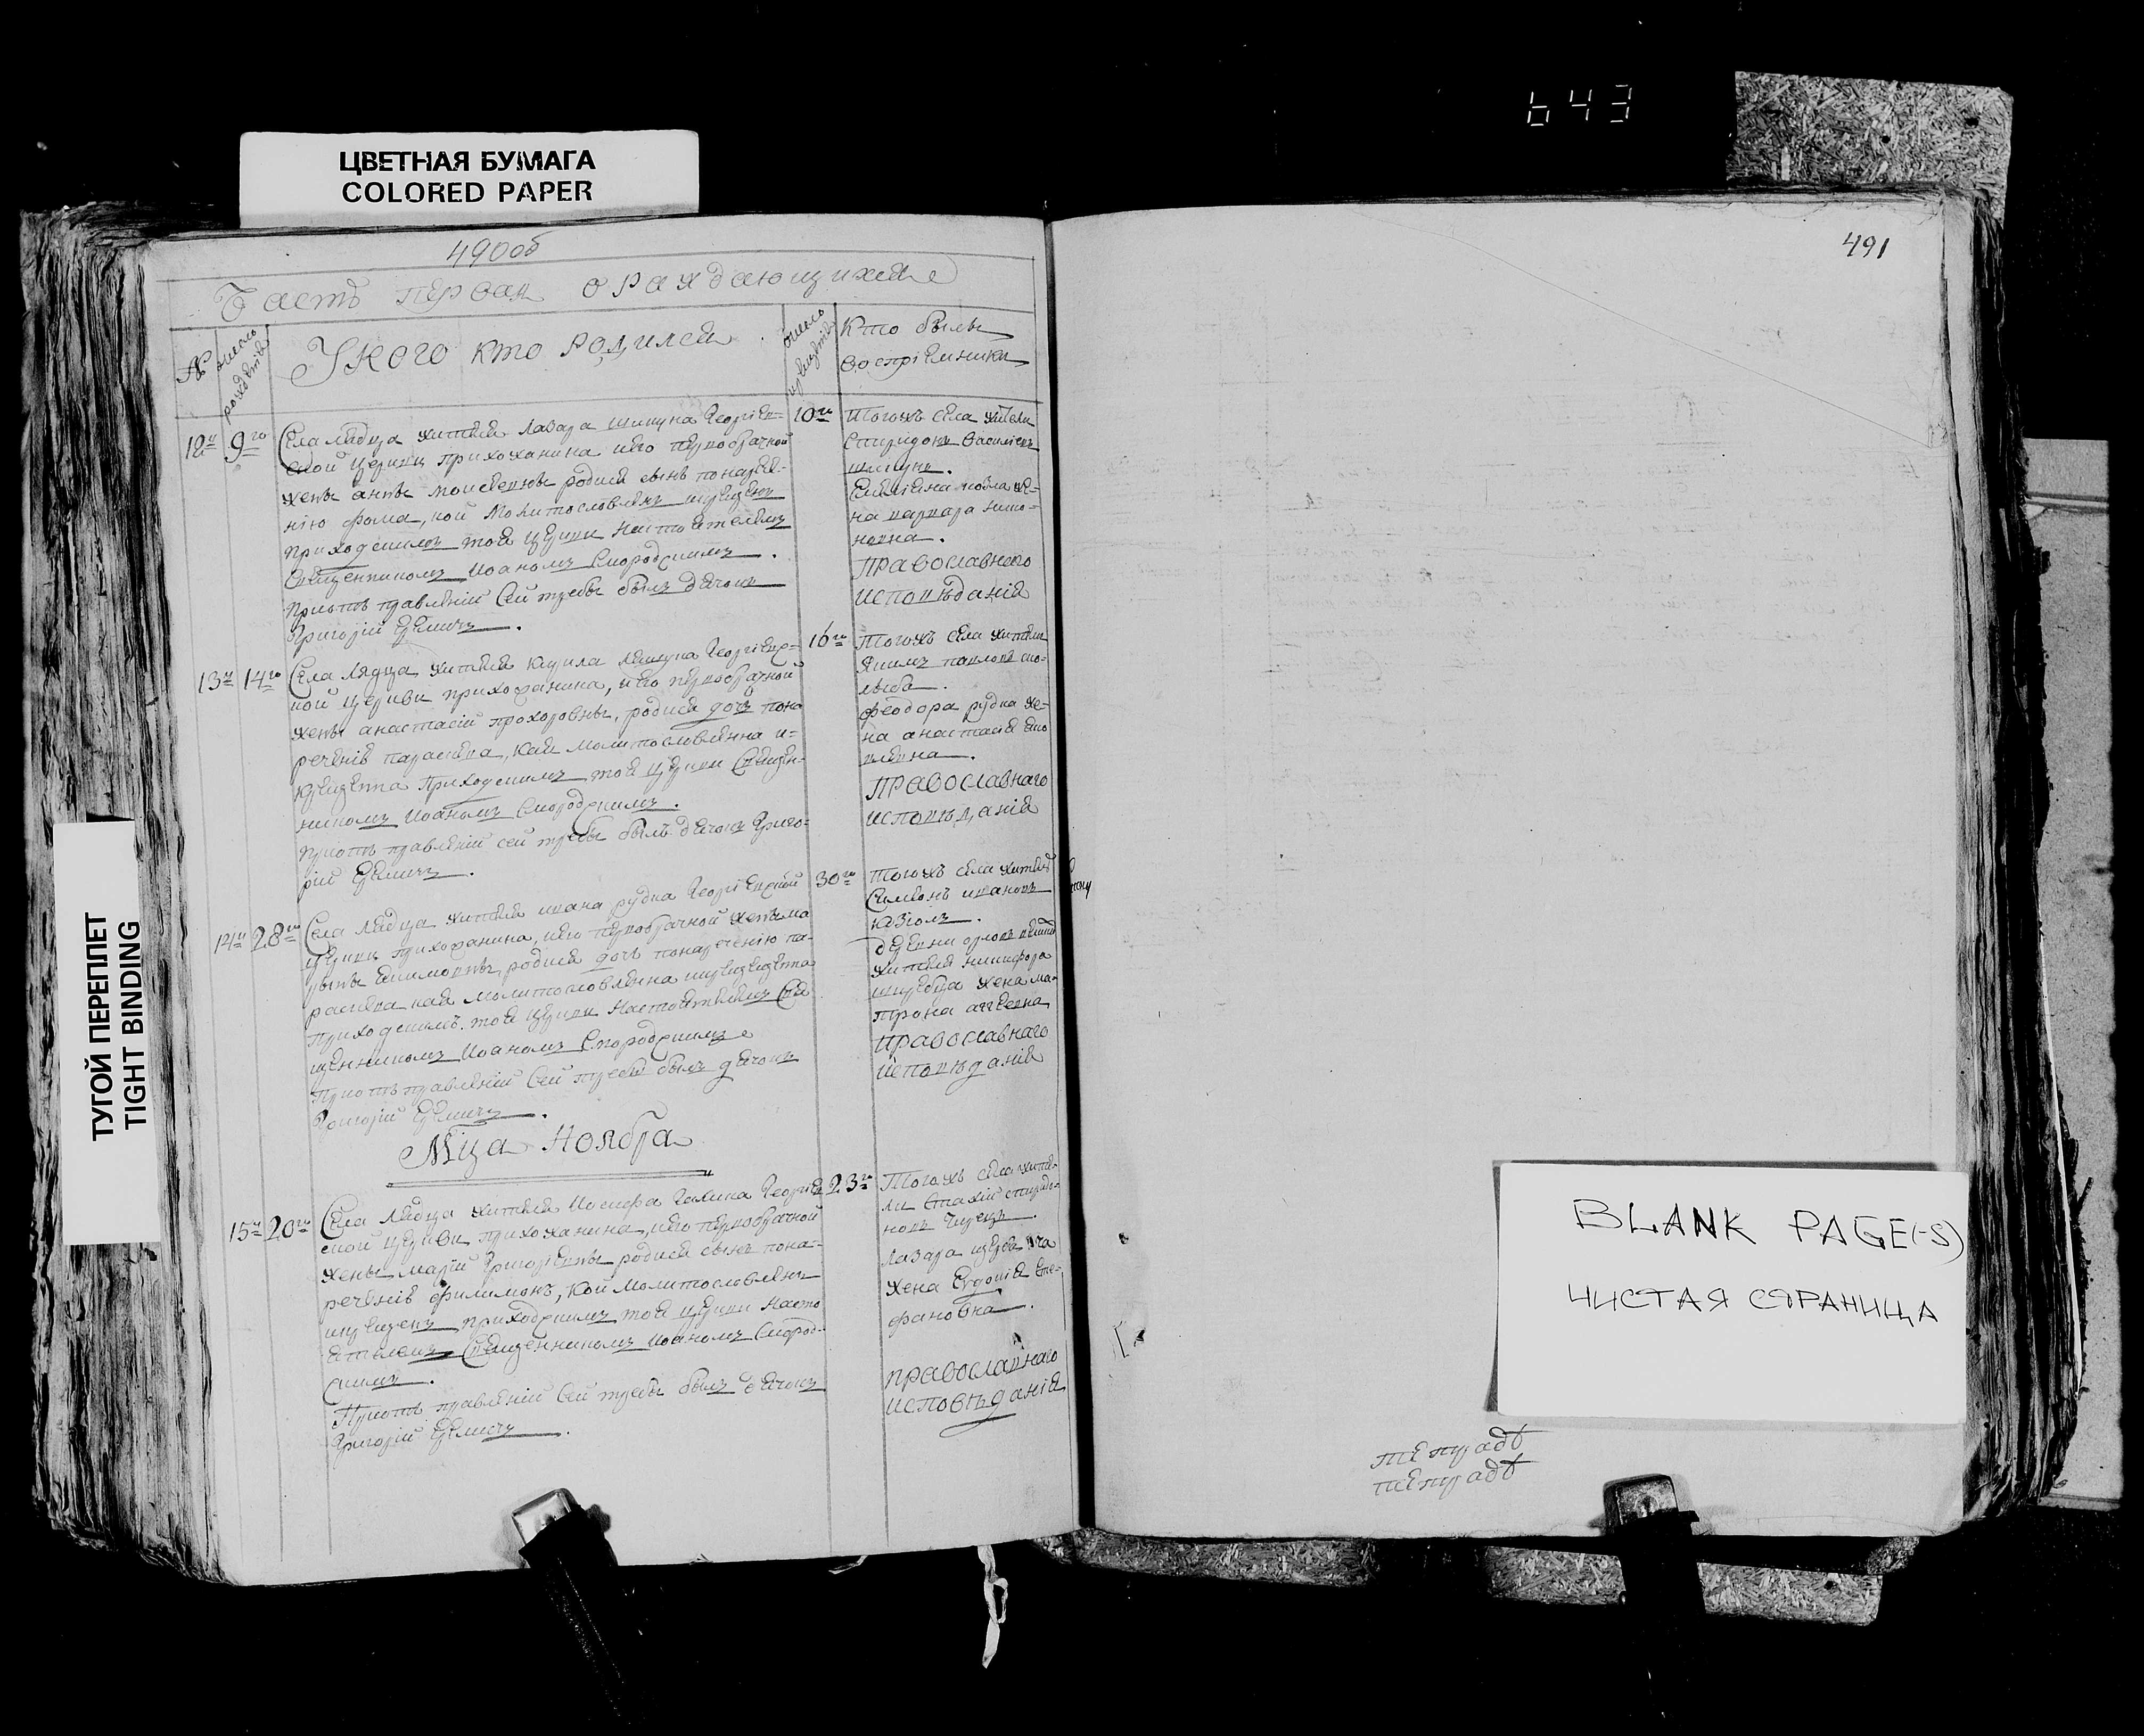 643
ЦВЕТНАЯ БУМАГА
COLORED PAPER
ТУГОЙ ПЕРЕПЛЕТ
TIGHT BINDING
490об
Часть первая о раждающихся
№
число рождения
У кого кто родился
число крещения
Кто были
воспріемники
12й 9го
Села Лядца жителя Лазара Шикуна Георгіев-
ской церкви прихожанина и его первобрачной
жены Анны Моисеевны родися сынъ по нарѣче-
нію Фома, кой молитвословленъ и крещенъ
приходскимъ тоя церкви настоятелемъ
Священникомъ Иоаномъ Смородскимъ.
При отправленіи сей требы былъ дячокъ
Григорій
10го
Тогожъ села жители
Спиридонъ
жена
Православного
исповѣданія
13й 14го
Села Лядца жителя Кирила Георгіевс-
кой церкви прихожанина, и его первобрачной
жены Анастасіи Прохоровны, родися дочь по на
реченію Параскева, кая молитвословленна и
крещенна приходскимъ тоя церкви Священ-
никомъ Иоаномъ Смородскимъ.
При отправленіи сей требы былъ дячокъ Григо-
рій
16го
Тогожъ села жители
Якимъ Павловъ
Феодора Рудка же-
на Анастасія
Православнаго
исповѣданія
14й 28го
Села Лядца жителя Ивана Рудка Георгіевской
церкви прихожанина, и его первобрачной жены Ма
рыны родися дочь по нареченію Па-
раскева кая молитвословленна и крещенна
приходскимъ тоя церкви настоятелемъ Свя
щенникомъ Иоаномъ Смородскимъ
При отправленіи сей требы былъ дячокъ
Григорій
30го
Тогожъ села житель
Симеонъ Ивановъ
деревни
жителя Никифора
жена Ма-
трона
Православнаго
исповѣданія
Мца Ноября
15й 20го
Села Лядца жителя Иосифа Галика Георгіев
ской церкви прихожанина, и его первобрачной
жены Маріи Григоріевны родися сынъ по на-
реченію Филимонъ, кой молитвословленъ
и крещенъ приходскимъ тоя церкви насто
ятелемъ Священникомъ Иоаномъ Смород-
скимъ.
При отправленіи сей требы былъ дячокъ
Григорій
23го
Тогожъ села жите-
ли Стахій Спиридо-
новъ
Лазара
жена Евдокія Сте-
фановна.
Православнаго
исповѣданія
491
BLANK PAGE(-S)
ЧИСТАЯ СТРАНИЦА